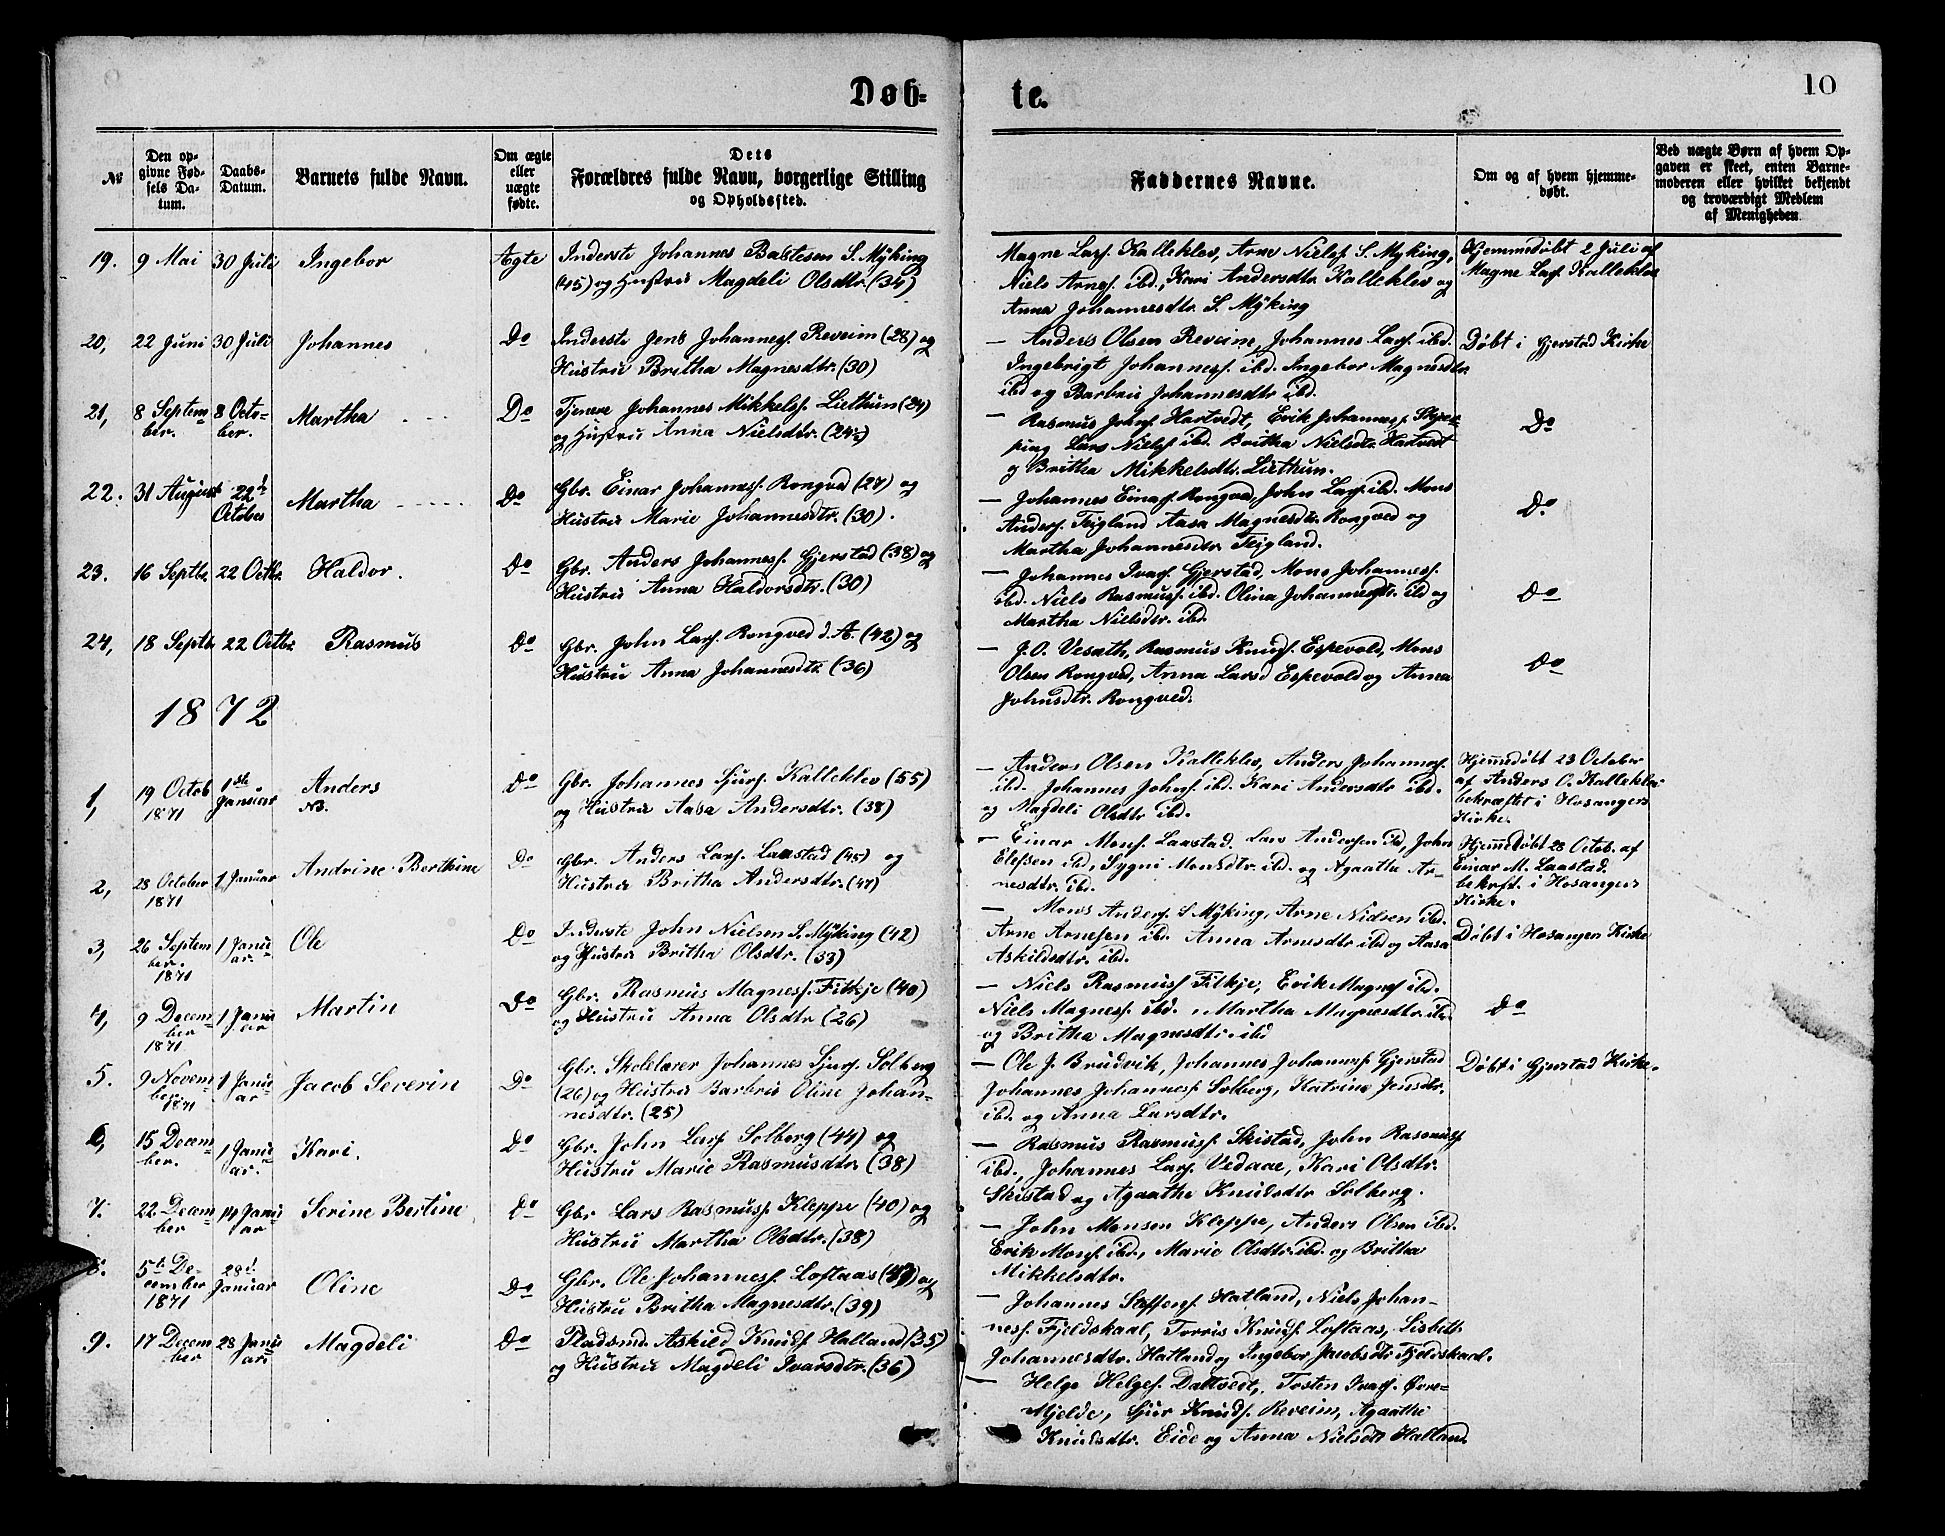 Døb-
te.
10
№
Den op-
givne Fød-
sels Da-
tum.
Daabs-
Datum.
Barnets fulde Navn.
Om ægte
eller
uægte
fødte.
Dets
Forældres fulde Navn, borgerlige Stilling
og Opholdssted.
Faddernes Navne.
Om og af hvem hjemme-
døbt.
Ved uægte Børn af hvem Op-
gaven er skeet, enten Barne-
moderen eller hvilket bekjendt
og troværdigt Medlem
af Menigheden
19. 9 Mai 30 Juli Ingebor Ægte Inderste Johannes Baltesen S. Myking
(45) og Hustru Magdeli Olsdtr. (34)
Magne Larss. Kalleklev, Arne Nielss. S. Myking,
Niels Arness. ibd., Kari Andersdtr. Kalleklev og
Anna Johannesdtr. S. Myking
Hjemmedøbt 2 Juli af
Magne Larss. Kalleklev
20, 22 Juni 30 Juli Johannes Do Inderste Jens Johanness. Reveim (28) og
Hustru Britha Magnesdtr. (30)
— Anders Olsen Reveim, Johannes Larss. ibd.
Ingebrigt Johanness. ibd. Ingebor Magnesdtr.
ibd og Barbru Johannesdtr ibd.
Døbt i Gjerstad Kirke
21, 8 Septem-
ber. 8 Octo-
ber. Martha Do Tjenere Johannes Mikkelss. Liethun (24)
og Hustru Anna Nielsdtr. (24)
— Rasmus Johns. Hartvedt, Erik Johanness.
Lars Nielss. ibd. Britha Nielsdtr. Hartvedt
og Britha Mikkelsdtr. Liethun.
Do
22. 31 August 22d
October Martha Do Gbr. Einar Johanness. Rongved (27) og
Hustru Marie Johannesdtr. (30).
— Johannes Einarss. Rongved, John Larss. ibd. Mons
Anderss. Teigland Aasa Magnesdtr. Rongved og
Martha Johannesdtr. Teigland.
Do
23. 16 Septbr. 22 Octbr. Haldor. Do Gbr. Anders Johanness. Gjerstad (38) og
Hustru Anna Haldorsdtr. (30)
— Johannes Ivars. Gjerstad, Mons Johanness.
ibd. Niels Rasmuss. ibd. Olina Johannesdtr. ibd og
Martha Nielsdtr. ibd.
Do
24, 18 Septb. 22 Octbr Rasmus Do Gbr. John Larss. Rongved d. A. (42) og
Hustru Anna Johannesdtr. (36)
— J. O. Vesath, Rasmus Knuds. Espevold, Mons
Olsen Rongved, Anna Larsd Espevold og Anna
Johnsdtr. Rongved.
Do
1872
1, 19 Octob
1871 1ste
Januar Anders
NB. Do Gbr. Johannes Sjurs. Kalleklev (55)
og Hustru Aasa Andersdtr. (38)
— Anders Olsen Kalleklev, Anders Johanness.
ibd. Johannes Johns. ibd. Kari Andersdtr ibd.
og Magdeli Olsdtr ibd.
Hjemmedøbt 23 October
af Anders O. Kalleklev
bekræftet i Hosanger
Kirke.
2, 28 October
1871 1 Januar Andrine Berthine Do Gbr. Anders Larss. Laastad (45) og
Hustru Britha Andersdtr. (47)
— Einar Monss. Laastad. Lars Andersen ibd, John
Elefsen ibd, Sygni Monsdtr. ibd. og Agaathe Ar-
nesdtr. ibd.
Hjemmedøbt 28 Octob. af
Einar M. Laastad.
bekrft. i Hosanger
Kirke.
3, 26 Septem
ber.
1871 1 Janu-
ar. Ole Do Inderste John Nielsen S. Myking (42)
og Hustru Britha Olsdtr. (33)
— Mons Anderss. S Myking, Arne Nielsen ibd.
Arne Arnesen ibd. Anna Arnesdtr ibd og Aasa
Askildsdtr. ibd.
Døbt i Hosanger Kirke
4, 9 Decem-
ber
1871 1 Janu
ar Martin Do Gbr. Rasmus Magness. Fitkje (40)
og Hustru Anna Olsdtr (26)
— Niels Rasmuss Fitkje, Erik Magness ibd.
Niels Magness. ibd., Martha Magnesdtr. ibd.
og Britha Magnesdtr. ibd
Do
5. 9 Novem-
ber
1871 1 Janu
ar. Jacob Severin Do Gbr. Skolelærer Johannes Sjurs. Solberg
(26) og Hustru Barbru Oline Johan-
nesdtr. (25)
— Ole J. Brudvik, Johannes Johanness Gjerstad
Johannes Johanness. Solberg, Katrine Jensdtr.
ibd. og Anna Larsdtr.
Døbt i Gjerstad Kirke.
6, 15 Decem-
ber. 1 Janu
ar. Kari. Do Gbr. John Larss Solberg (44) og
Hustru Marie Rasmusdtr (38)
— Rasmus Rasmuss. Skistad, John Rasmuss
ibd, Johannes Larss. Vedaae, Kari Olsdtr.
Skistad og Agaathe Knudsdtr Solberg.
7. 22 Decem-
ber 14 Janu
ar Serine Bertine Do Gbr Lars Rasmuss. Kleppe (40) og
Hustru Martha Olsdtr. (38)
— John Monsen Kleppe, Anders Olsen ibd.
Erik Monss. ibd., Marie Olsdtr. ibd. og Britha
Mikkelsdtr.
8. 5te De-
cember
1871 28d
Januar Oline Do Gbr. Ole Johanness. Loftaas og
Hustru Britha Magnesdtr. (39)
— Johannes Steffens. Hatland, Niels Johan-
ness. Fjeldskaal, Torris Knuds. Loftaas, Lisbeth
Johannesdtr. Hatland og Ingebor Jacobsdtr Fjeldskaal.
9. 17 Decem
ber 28 Janu
ar Magdeli Do Pladsmd. Askild Knuds. Halland (35)
og Hustru Magdeli Ivarsdtr. (36)
— Helge Helges. Daltvedt, Tosten Ivars. Øvre-
Mjelde, Sjur Knuds. Reveim, Agaathe
Knudsdtr. Eide og Anna Nielsdtr Halland.